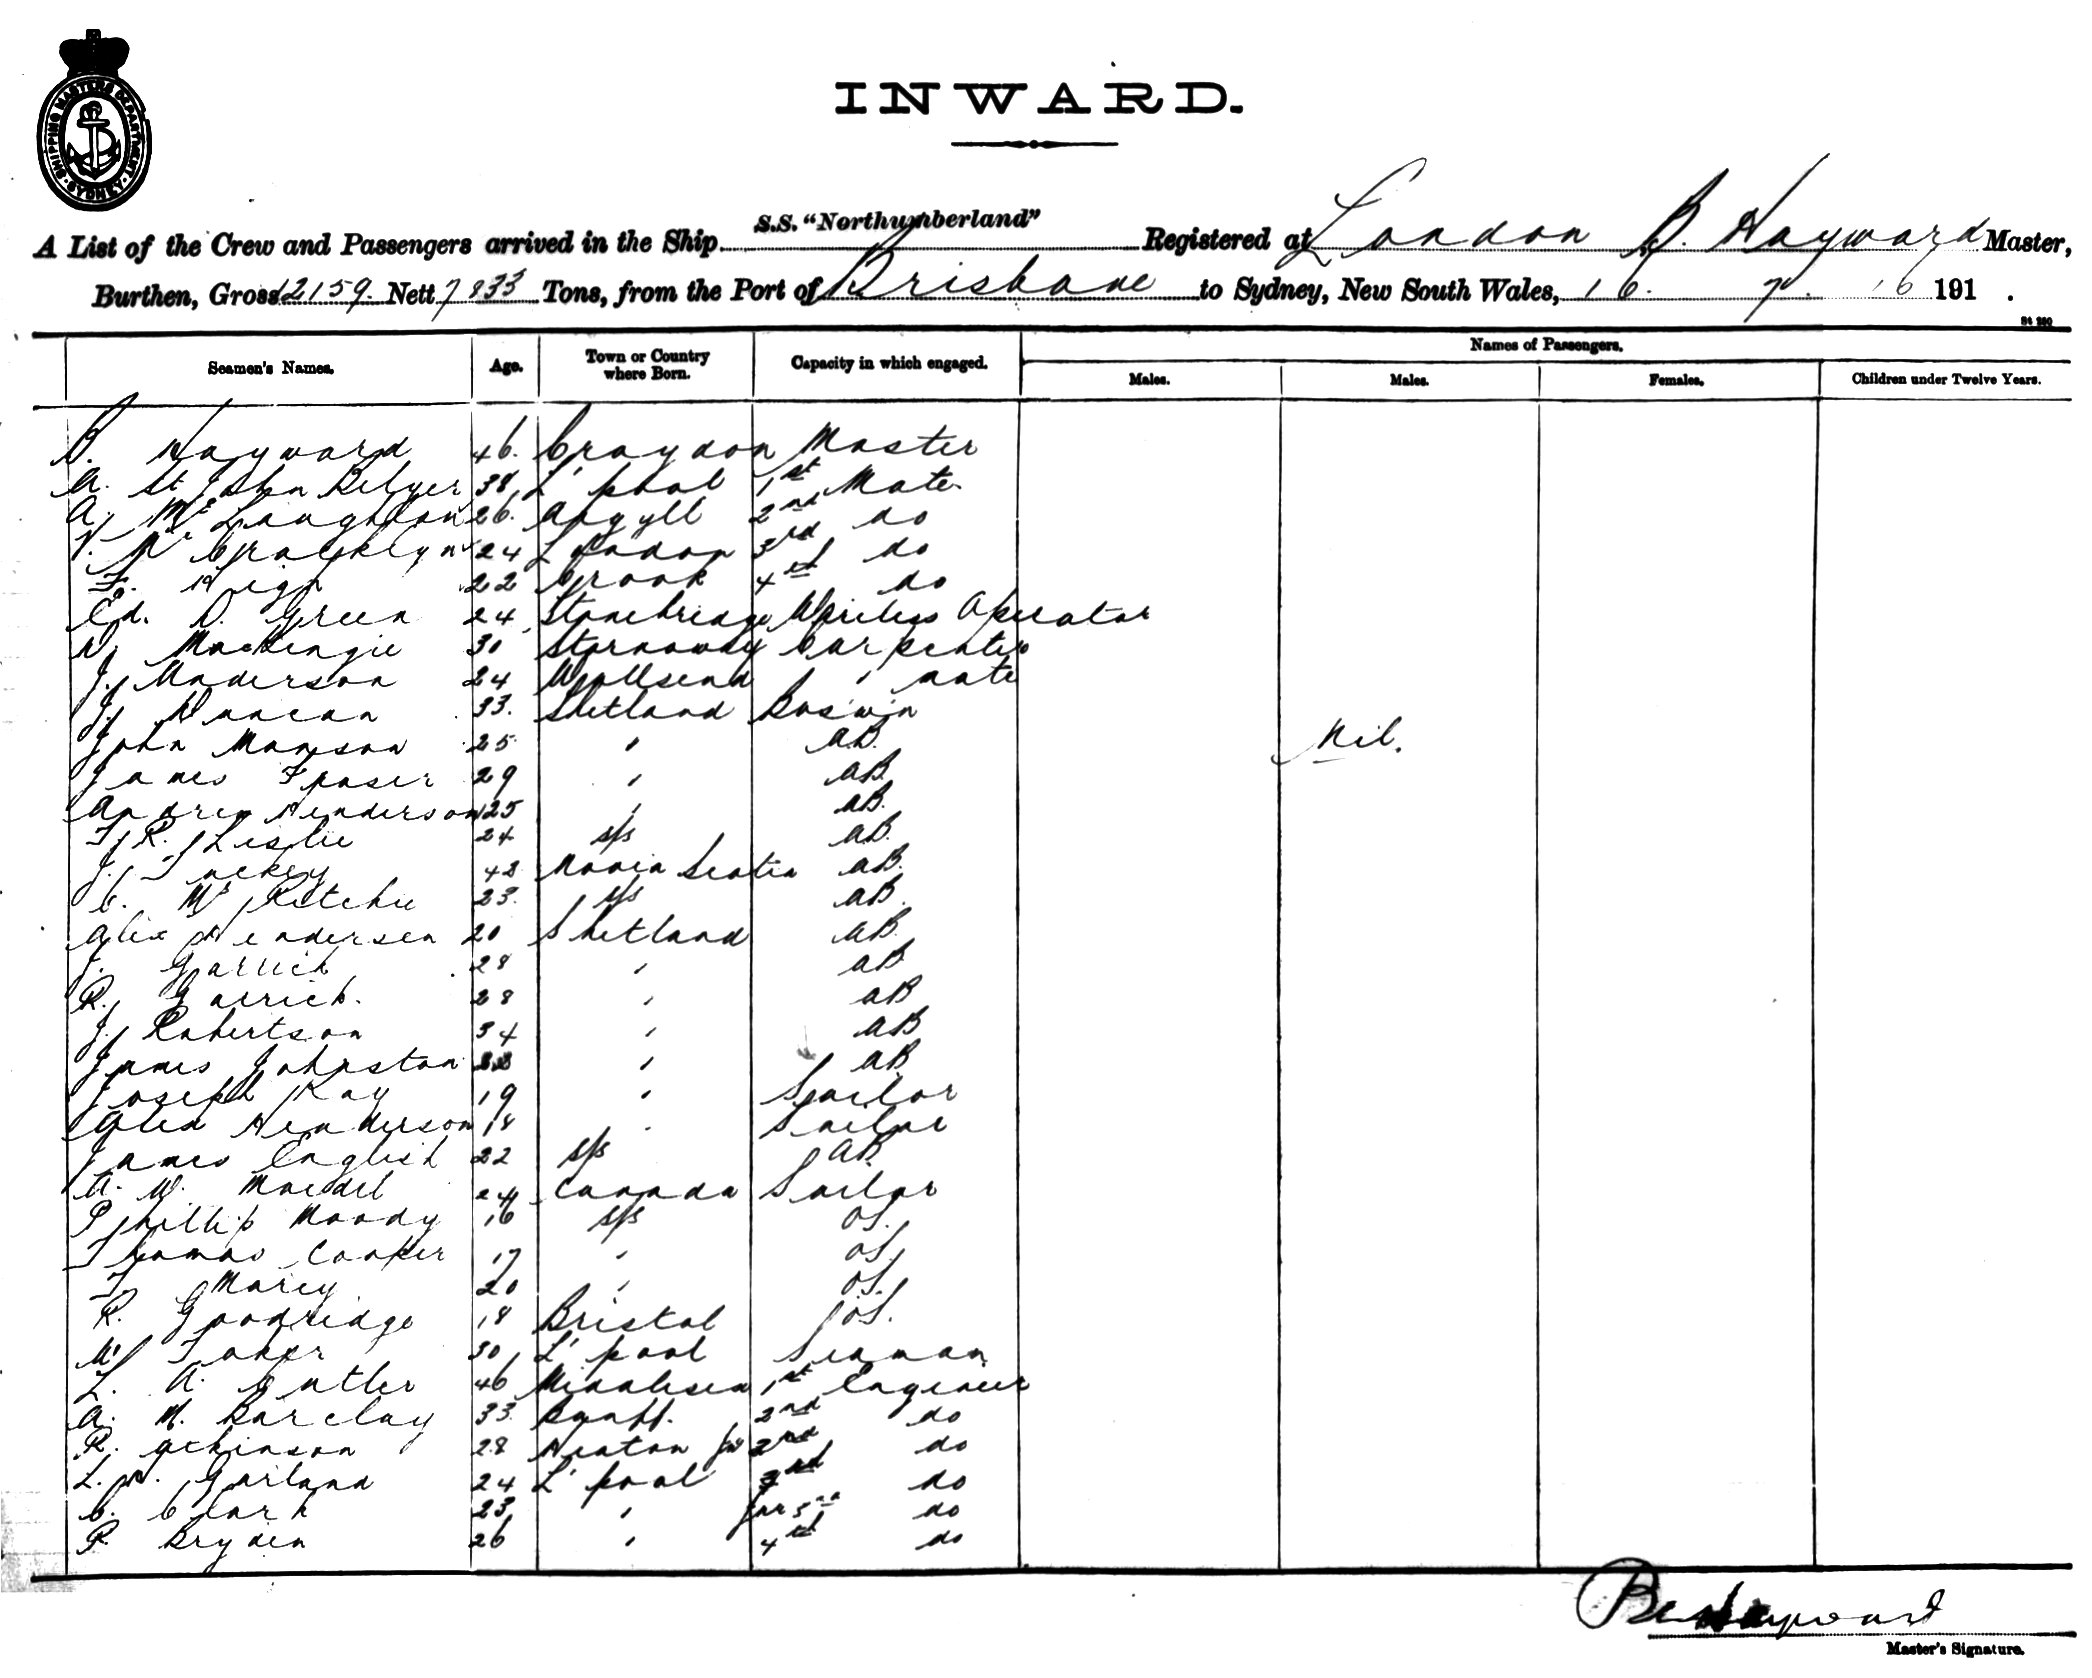 SHIPPING MASTERS DEPARTMENT SYDNEY
INWARD.
A List of the Crew and Passengers arrived in the Ship S.S. "Northumberland" Registered at London B. Hayward Master,
Burthen, Gross 12159. Nett 7833 Tons, from the Port of Brisbane to Sydney, New South Wales, 16. 7. 16 191 .
Seamen's Names. Age. Town or Country where Born. Capacity in which engaged. Names of Passengers.
Males. Males. Females. Children under Twelve Years.
B. Hayward 46. Croydon Master
A. St John 38 L'pool 1st Mate
A. McLaughlan 26. Argyll 2nd do
24 London 3rd do
22 4th do
Ed. D. Green 24 Stonebridge Wireless Operator
Mackenzie 30 Stornoway Carpenter
J. Anderson 24 Wallsend " mate
J. Duncan 33. Shetland Bos'w'n
John Manson 25 " AB. Nil.
James Fraser 29 " AB.
Andrew Henderson 25 " AB.
T. R. Leslie 24 s/s AB.
J. 42 Nova Scotia AB.
C. McRitchie 23. s/s AB.
Alex Henderson 20 Shetland AB.
J. Garrick 28 " AB
R. Garrick. 28 " AB
J. Robertson 34 " AB
James Johnston " AB.
Joseph Kay 19 " Sailor
Alex Henderson 18 " Sailor
James English 22 s/s AB.
A. W. 24 Canada Sailor
Phillip Moody 16 s/s OS.
Thomas Cooker 17 " OS.
T. Marcy 20 " OS.
R. Goodridge 18 Bristol OS.
30 L'pool Seaman
L. A. Butler 46 Middlesex 1st Engineer
A. M. Barclay 33. Banff. 2nd do
R. Ackinson 28 Heaton Jnr 2nd do
L. Garland 24 L'pool 3rd do
C. Clark 23 " Jnr 3rd do
R. Bryden 26 " 4th do
B Hayward
Master's Signature.